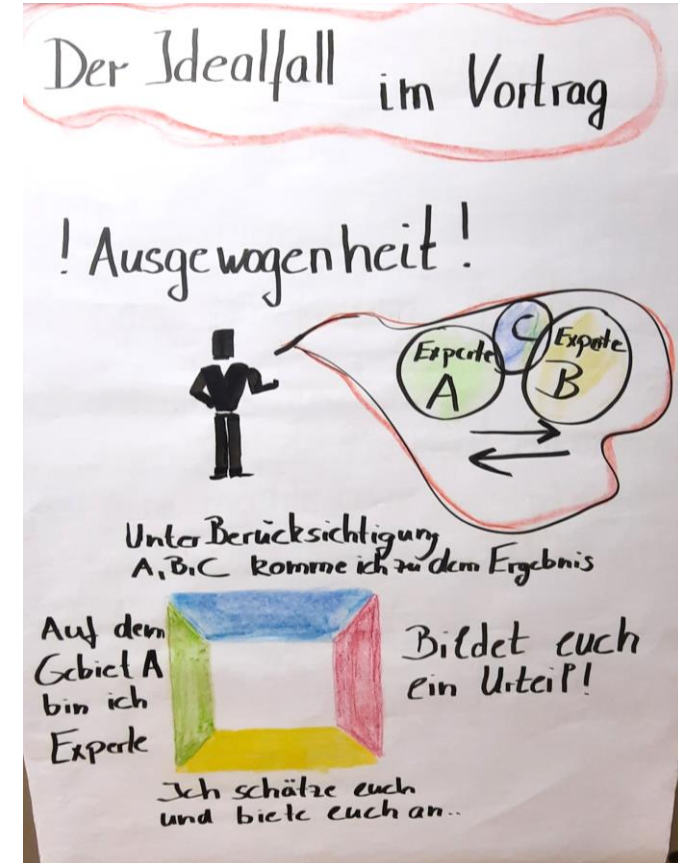 Der Idealfall
im Vortrag
! Ausgewogenheit !
Experte
A
C
Experte
B
Unter Berücksichtigung
A, B, C komme ich zu dem Ergebnis
Auf dem
Gebiet A
bin ich
Experte
Bildet euch
ein Urteil!
Ich schätze euch
und biete euch an..